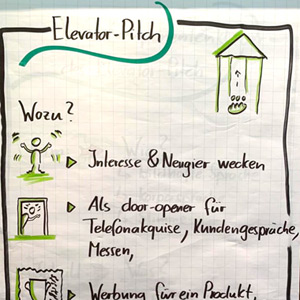 Elevator-Pitch
Wozu?
Interesse & Neugier wecken
Als door-opener für
Telefonakquise, Kundengespräche,
Messen,
Werbung für ein Produkt,